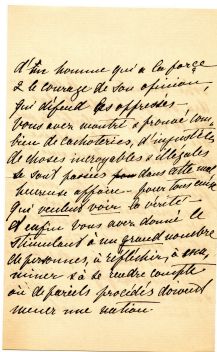 d'un homme qui a la force
& le courage de son opinion,
qui défend les oppressés.
Vous avez montré & prouvé com
bien de cachoteries, d'injustices
de choses incroyables & illégales
se sont passées dans cette mal
heureuse affaire – pour tous ceux
qui veulent voir la vérité –
& enfin vous avez donné le
stimulant à un grand nombre
de personnes, à réfléchir, à exa
miner & à se rendre compte
où de pareils procédés doivent
mener une nation